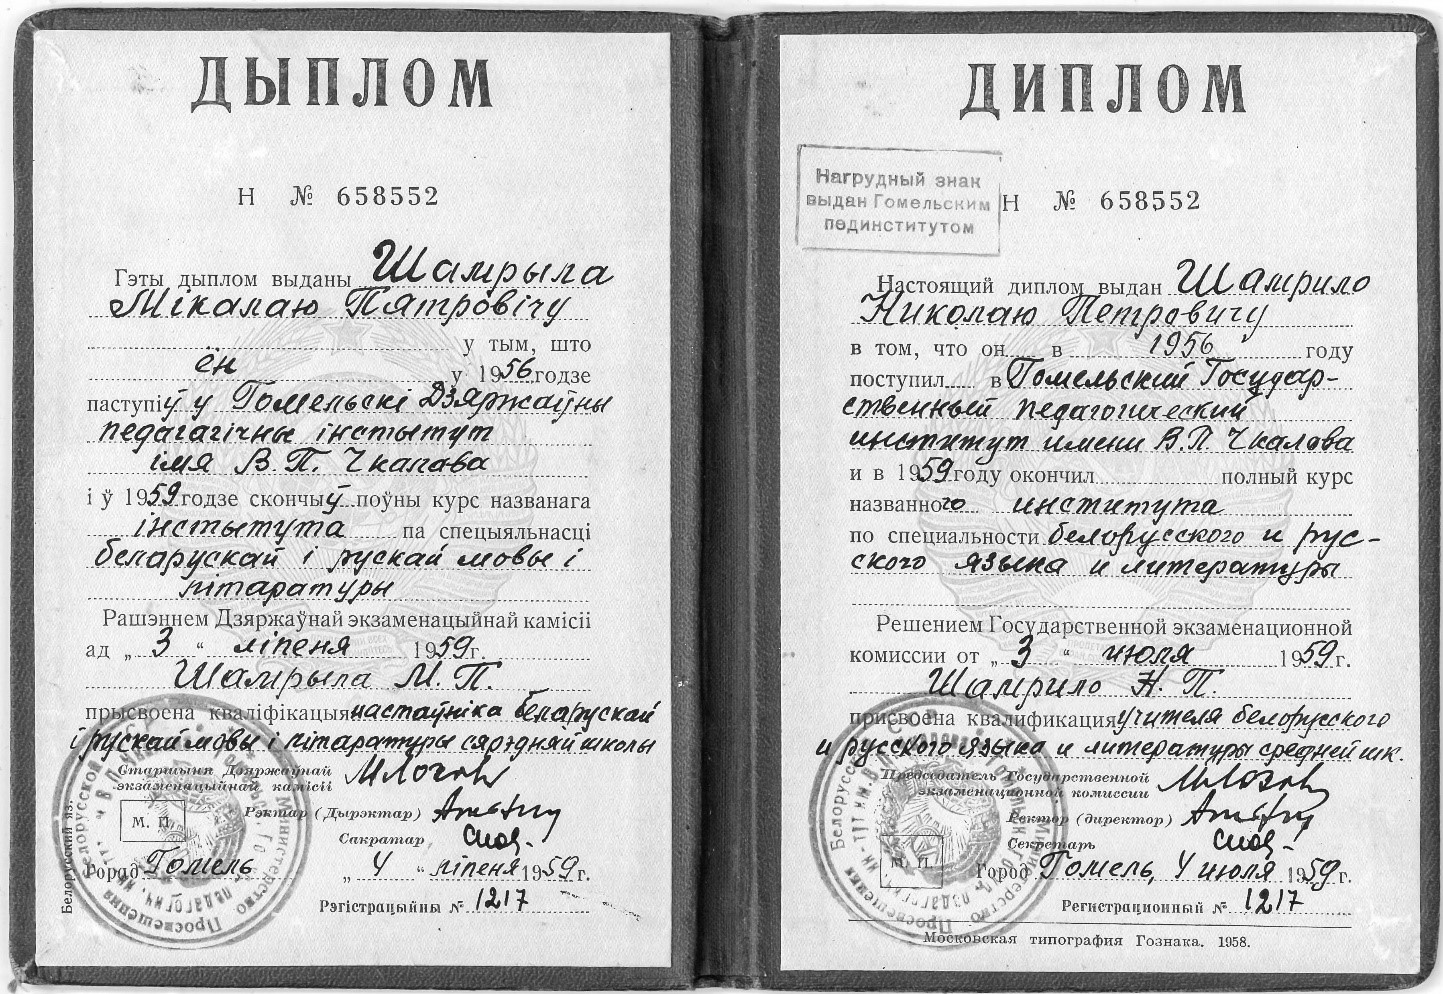 ДЫПЛОМ
Н № 658552
Гэты дыплом выданы Шамрыла
Мікалаю Пятровічу
у тым, што
ён у 1956 годзе
паступіў у Гомельскі Дзяржаўны
педагагічны інстытут
імя В. П. Чкалава
і ў 1959 годзе скончыў поўны курс названага
інстытута па спецыяльнасці
беларускай і рускай мовы і
літаратуры
Рашэннем Дзяржаўнай экзаменацыйнай камісіі
ад „ 3 “ ліпеня 1959 г.
Шамрыла М. П.
прысвоена кваліфікацыя настаўніка беларускай
і рускай мовы і літаратуры сярэдняй школы
Старшыня Дзяржаўнай
экзаменацыйнай камісіі
Рэктар (Дырэктар)
Сакратар
М. П.
Город Гомель „ 4 “ ліпеня 1959 г.
Рэгістрацыйны № 1217
Белорусский яз.
ДИПЛОМ
Нагрудный знак
выдан Гомельским
пединститутом
Н № 658552
Настоящий диплом выдан Шамрило
Николаю Петровичу
в том, что он в 1956 году
поступил в Гомельский Государ-
ственный педагогический
институт имени В. П. Чкалова
и в 1959 году окончил полный курс
названного института
по специальности белорусского и рус-
ского языка и литературы
Решением Государственной экзаменационной
комиссии от „ 3 “ июля 1959 г.
Шамрило Н. П.
присвоена квалификация учителя белорусского
и русского языка и литературы средней шк.
Председатель Государственной
экзаменационной комиссии
Ректор (директор)
Секретарь
М. П.
Город Гомель, 4 июля 1959 г.
Регистрационный № 1217
Московская типография Гознака. 1958.